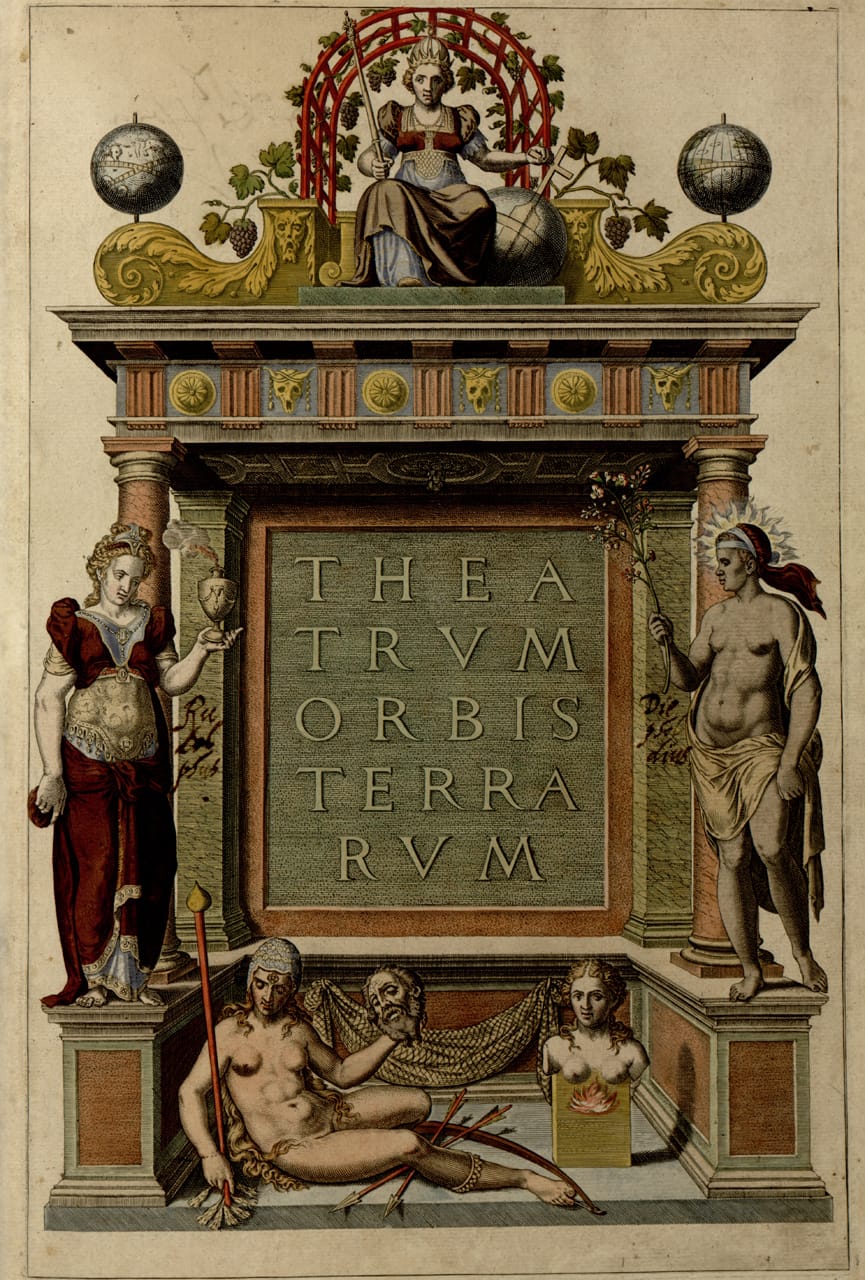 THEA
TRVM
ORBIS
TERRA
RVM